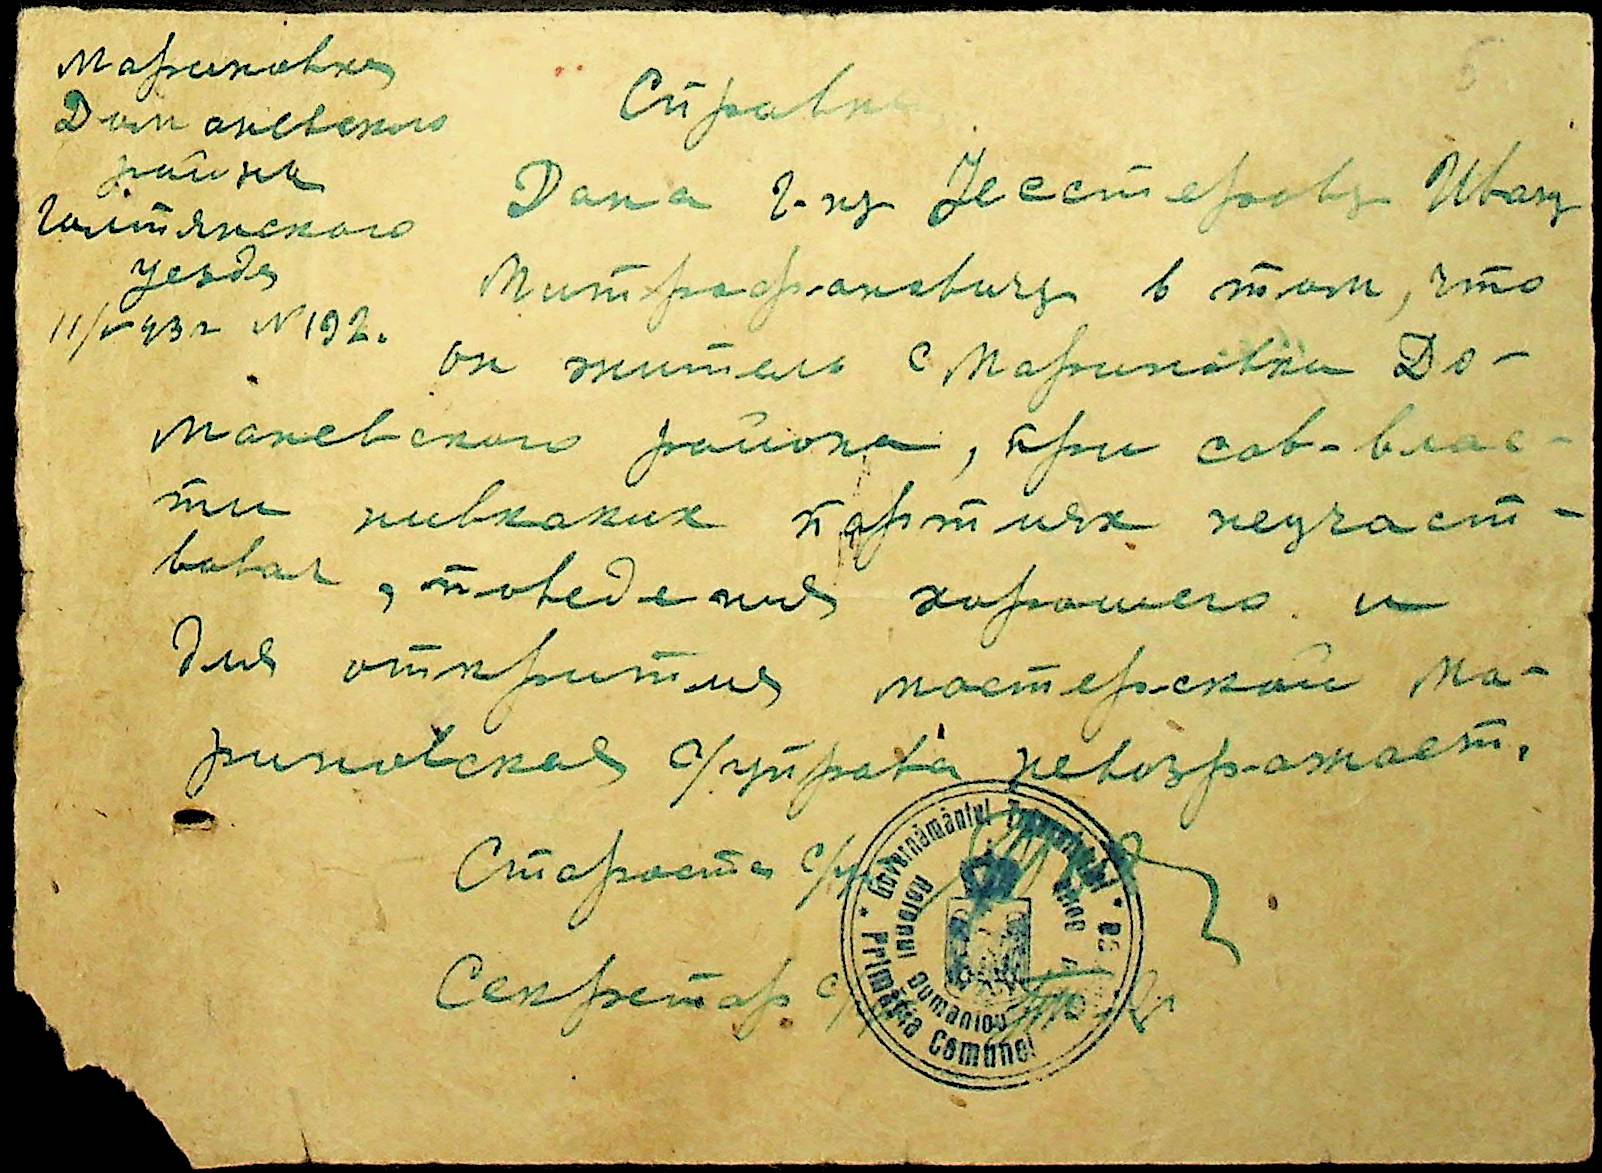 Мариновка
Доманевского
района
Голтянского
уезда
11/V 43 г № 192.
5
Справка
Дана г-ну Несстерову Ивану
Митрофановичу в том, что
он житель с Мариновки До-
маневского района, при сов-влас-
ти нивкаких партиях неучаст-
вовал, поведения хорошего и
для открития мастерской Ма-
риновская с/управа невозражает.
Староста с/у
Секретар с/у
* Guvernământul Transnistriei *
Primăria Comunei
Raionul Dumaniou